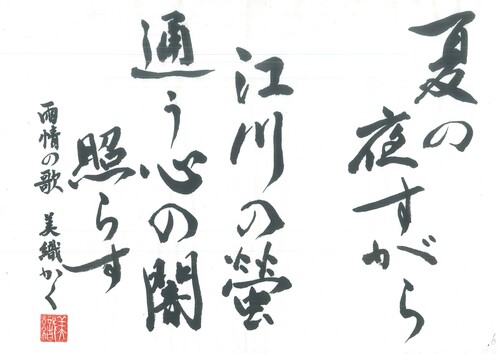 夏の
夜すがら
江川の螢
通う心の闇
照らす
雨情の歌 美織かく